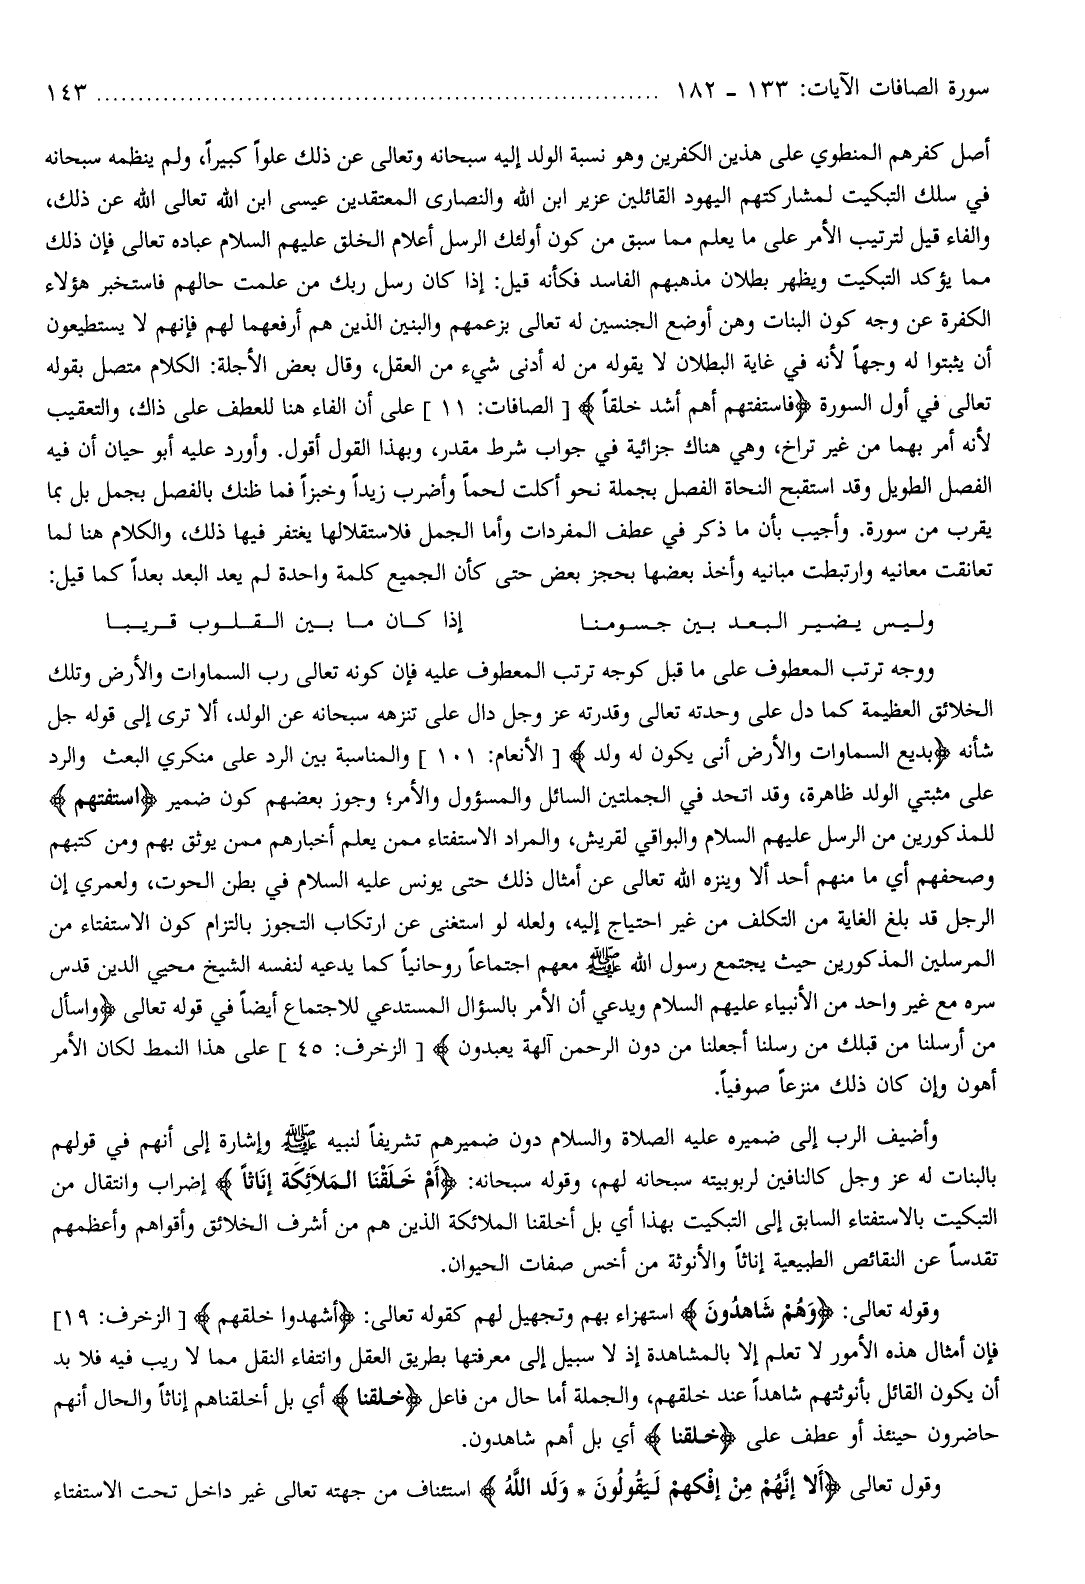 سورة الصافات الآيات: ١٣٣ - ١٨٢ ........................................ ١٤٣
أصل كفرهم المنطوي على هذين الكفرين وهو نسبة الولد إليه سبحانه وتعالى عن ذلك علواً كبيراً، ولم ينظمه سبحانه
في سلك التبكيت لمشاركتهم اليهود القائلين عزير ابن الله والنصارى المعتقدين عيسى ابن الله تعالى الله عن ذلك،
والفاء قيل لترتيب الأمر على ما يعلم مما سبق من كون أولئك الرسل أعلام الخلق عليهم السلام عباده تعالى فإن ذلك
مما يؤكد التبكيت ويظهر بطلان مذهبهم الفاسد فكأنه قيل: إذا كان رسل ربك من علمت حالهم فاستخبر هؤلاء
الكفرة عن وجه كون البنات وهن أوضع الجنسين له تعالى بزعمهم والبنين الذين هم أرفعهما لهم فإنهم لا يستطيعون
أن يثبتوا له وجهاً لأنه في غاية البطلان لا يقوله من له أدنى شيء من العقل، وقال بعض الأجلة: الكلام متصل بقوله
تعالى في أول السورة ﴿فاستفتهم أهم أشد خلقاً﴾ [ الصافات: ١١ ] على أن الفاء هنا للعطف على ذاك، والتعقيب
لأنه أمر بهما من غير تراخ، وهي هناك جزائية في جواب شرط مقدر، وبهذا القول أقول. وأورد عليه أبو حيان أن فيه
الفصل الطويل وقد استقبح النحاة الفصل بجملة نحو أكلت لحماً وأضرب زيداً وخبزاً فما ظنك بالفصل بجمل بل بما
يقرب من سورة. وأجيب بأن ما ذكر في عطف المفردات وأما الجمل فلاستقلالها يغتفر فيها ذلك، والكلام هنا لما
تعانقت معانيه وارتبطت مبانيه وأخذ بعضها بحجز بعض حتى كأن الجميع كلمة واحدة لم يعد البعد بعداً كما قيل:
وليس يضير البعد بين جسومنا إذا كان ما بين القلوب قريبا
ووجه ترتب المعطوف على ما قبل كوجه ترتب المعطوف عليه فإن كونه تعالى رب السماوات والأرض وتلك
الخلائق العظيمة كما دل على وحدته تعالى وقدرته عز وجل دال على تنزهه سبحانه عن الولد، ألا ترى إلى قوله جل
شأنه ﴿بديع السماوات والأرض أنى يكون له ولد﴾ [ الأنعام: ١٠١ ] والمناسبة بين الرد على منكري البعث والرد
على مثبتي الولد ظاهرة، وقد اتحد في الجملتين السائل والمسؤول والأمر؛ وجوز بعضهم كون ضمير ﴿استفتهم﴾
للمذكورين من الرسل عليهم السلام والبواقي لقريش، والمراد الاستفتاء ممن يعلم أخبارهم ممن يوثق بهم ومن كتبهم
وصحفهم أي ما منهم أحد ألا وينزه الله تعالى عن أمثال ذلك حتى يونس عليه السلام في بطن الحوت، ولعمري إن
الرجل قد بلغ الغاية من التكلف من غير احتياج إليه، ولعله لو استغنى عن ارتكاب التجوز بالتزام كون الاستفتاء من
المرسلين المذكورين حيث يجتمع رسول الله ﷺ معهم اجتماعاً روحانياً كما يدعيه لنفسه الشيخ محيي الدين قدس
سره مع غير واحد من الأنبياء عليهم السلام ويدعي أن الأمر بالسؤال المستدعي للاجتماع أيضاً في قوله تعالى ﴿واسأل
من أرسلنا من قبلك من رسلنا أجعلنا من دون الرحمن آلهة يعبدون﴾ [ الزخرف: ٤٥ ] على هذا النمط لكان الأمر
أهون وإن كان ذلك منزعاً صوفياً.
وأضيف الرب إلى ضميره عليه الصلاة والسلام دون ضميرهم تشريفاً لنبيه ﷺ وإشارة إلى أنهم في قولهم
بالبنات له عز وجل كالنافين لربوبيته سبحانه لهم، وقوله سبحانه: ﴿أَمْ خَلَقْنَا المَلاَئِكَةَ إنَاثاً﴾ إضراب وانتقال من
التبكيت بالاستفتاء السابق إلى التبكيت بهذا أي بل أخلقنا الملائكة الذين هم من أشرف الخلائق وأقواهم وأعظمهم
تقدساً عن النقائص الطبيعية إناثاً والأنوثة من أخس صفات الحيوان.
وقوله تعالى: ﴿وَهُمْ شَاهدُونَ﴾ استهزاء بهم وتجهيل لهم كقوله تعالى: ﴿أشهدوا خلقهم﴾ [ الزخرف: ١٩]
فإن أمثال هذه الأمور لا تعلم إلا بالمشاهدة إذ لا سبيل إلى معرفتها بطريق العقل وانتفاء النقل مما لا ريب فيه فلا بد
أن يكون القائل بأنوثتهم شاهداً عند خلقهم، والجملة أما حال من فاعل ﴿خلقنا﴾ أي بل أخلقناهم إناثاً والحال أنهم
حاضرون حينئذ أو عطف على ﴿خلقنا﴾ أي بل أهم شاهدون.
وقول تعالى ﴿أَلا إنَّهُمْ مِنْ إفْكهمْ لَيَقُولُونَ * وَلَد اللَّهُ﴾ استئناف من جهته تعالى غير داخل تحت الاستفتاء